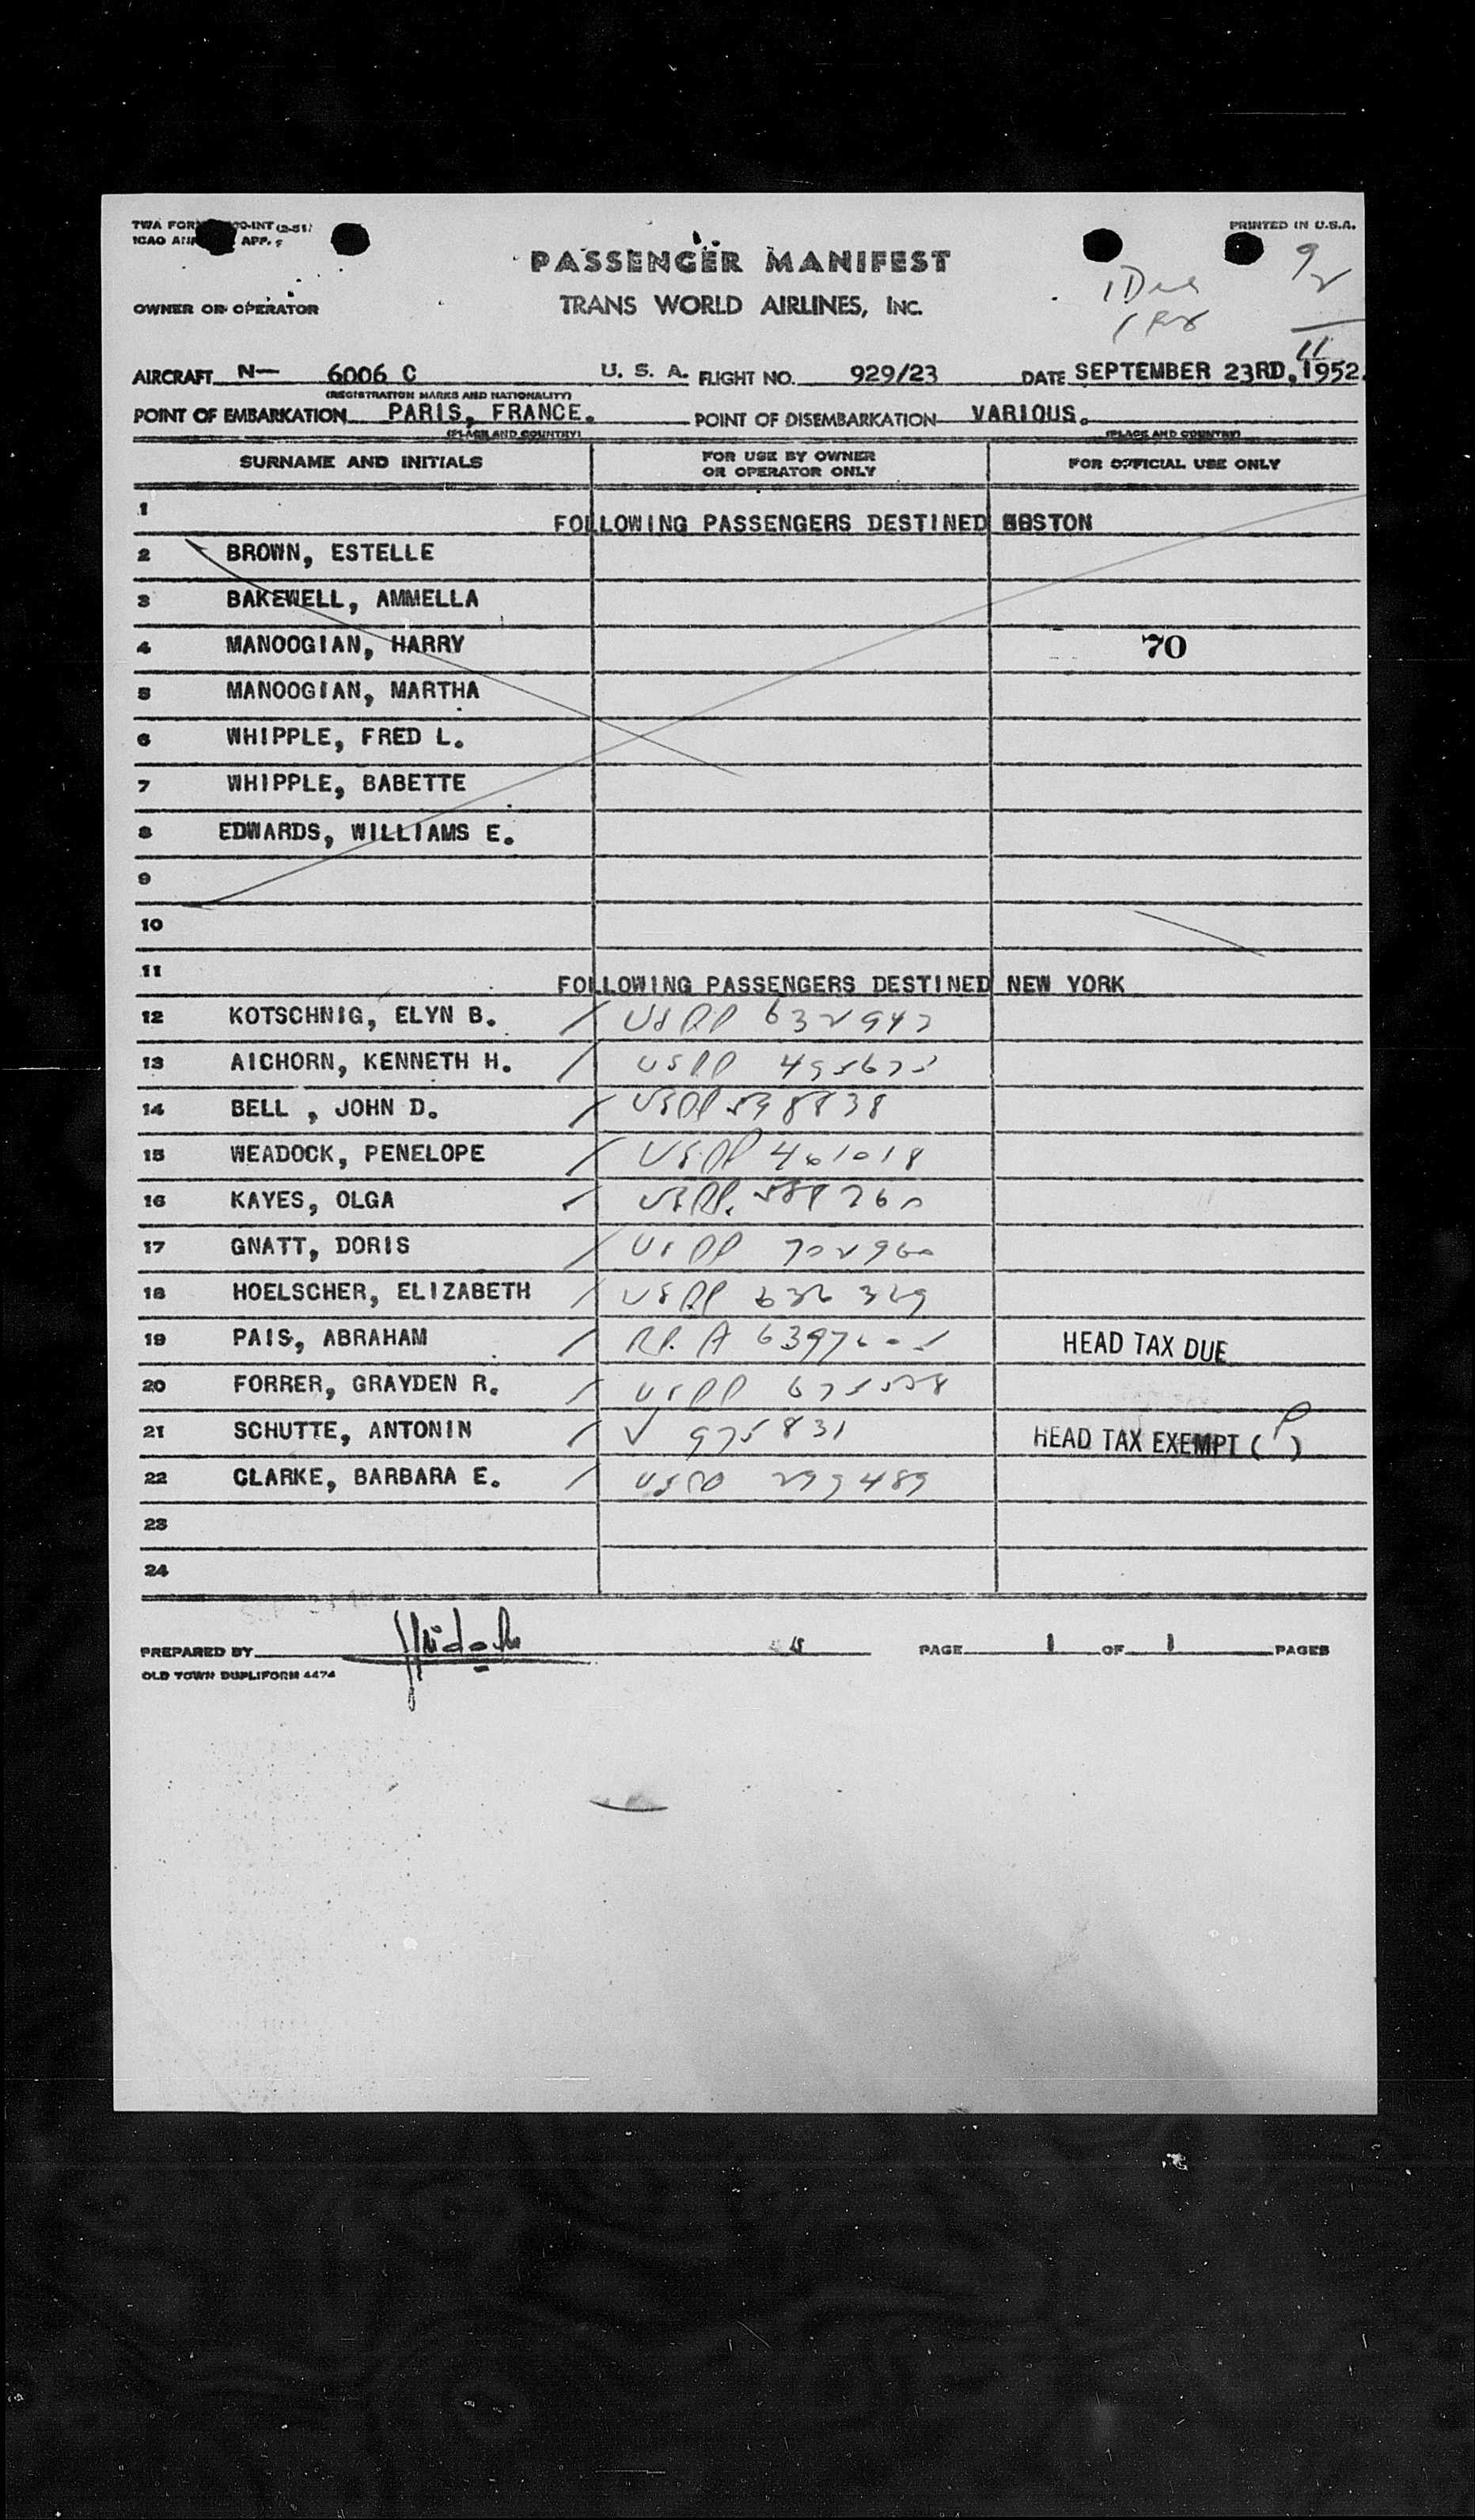 PRINTED IN U.S.A.
PASSENGER MANIFEST
TRANS WORLD AIRLINES, INC.
OWNER OR OPERATOR
9
2
11
AIRCRAFT N— 6006 C U. S. A. FLIGHT NO. 929/23 DATE SEPTEMBER 23RD, 1952.
(REGISTRATION MARKS AND NATIONALITY)
POINT OF EMBARKATION PARIS, FRANCE. POINT OF DISEMBARKATION VARIOUS.
(PLACE AND COUNTRY) (PLACE AND COUNTRY)
SURNAME AND INITIALS FOR USE BY OWNER OR OPERATOR ONLY FOR OFFICIAL USE ONLY
1 FOLLOWING PASSENGERS DESTINED BOSTON
2 BROWN, ESTELLE
3 BAKEWELL, AMMELLA
4 MANOOGIAN, HARRY 70
5 MANOOGIAN, MARTHA
6 WHIPPLE, FRED L.
7 WHIPPLE, BABETTE
8 EDWARDS, WILLIAMS E.
9
10
11 FOLLOWING PASSENGERS DESTINED NEW YORK
12 KOTSCHNIG, ELYN B. / USPP 632947
13 AICHORN, KENNETH H. / USPP
14 BELL , JOHN D. / USPP 598838
15 WEADOCK, PENELOPE / USPP 461018
16 KAYES, OLGA / USPP.
17 GNATT, DORIS / USPP 702960
18 HOELSCHER, ELIZABETH / USPP 636329
19 PAIS, ABRAHAM / RP. A HEAD TAX DUE
20 FORRER, GRAYDEN R. / USPP
21 SCHUTTE, ANTONIN / V 975831 HEAD TAX EXEMPT (P)
22 CLARKE, BARBARA E. / USPP 299489
23
24
PREPARED BY PAGE 1 OF 1 PAGES
OLD TOWN DUPLIFORM 4474